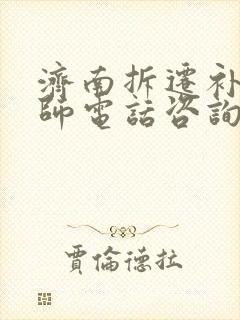 濟南拆遷補
師電話咨詢
賈倫德拉